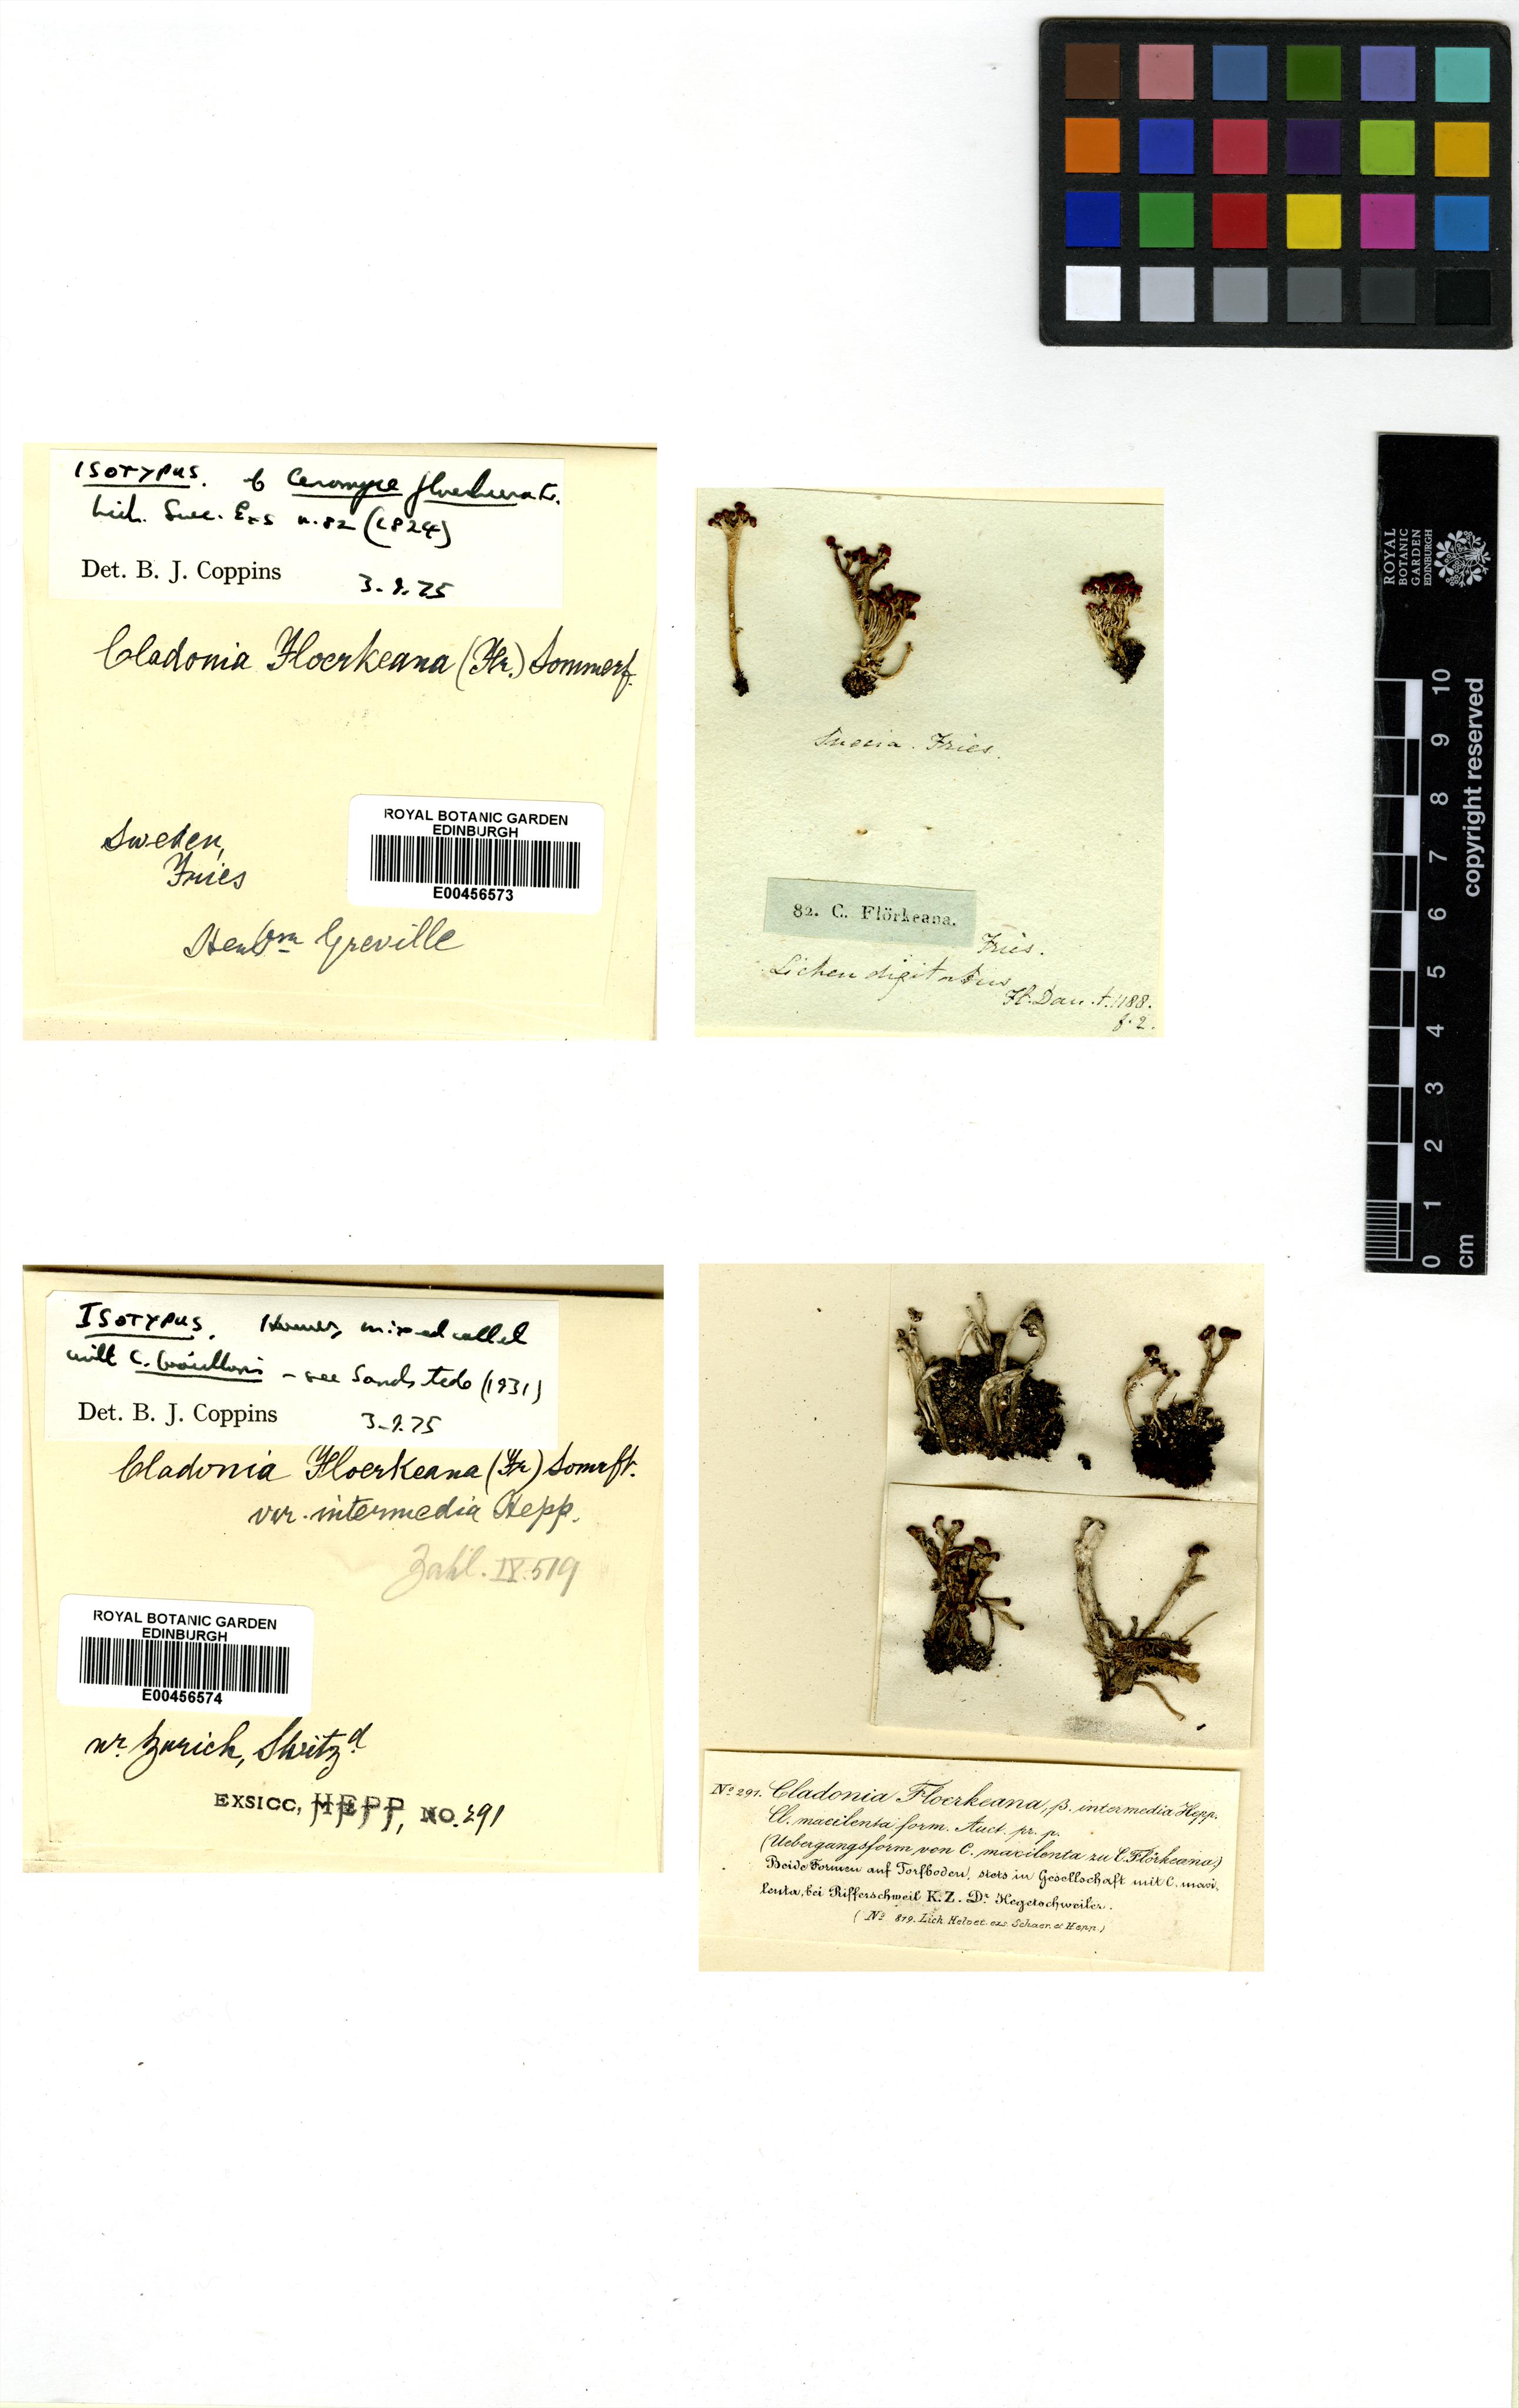 ISOTYPUS. of Cenomyce floerkeana Fr.
Lich. Suec. Exs n. 82 (1824)
Det. B. J. Coppins 3.9.75
Cladonia Floerkeana (Fr.) Sommerf.
Sweden,
Fries
ROYAL BOTANIC GARDEN
EDINBURGH
E00456573
Greville
Suecia. Fries.
82. C. Flörkeana.
Fries.
Lichen digitatus
Fl. Dan. t. 1188.
f. 2.
ROYAL
BOTANIC
GARDEN
EDINBURGH
copyright reserved
0 1 2 3 4 5 6 7 8 9 10
cm
ISOTYPUS. mixed
with C. bacillaris - see Sandstede (1931)
Det. B. J. Coppins 3.9.75
Cladonia Floerkeana (Fr) Somrft.
var. intermedia Hepp.
Zahl. IV. 519
ROYAL BOTANIC GARDEN
EDINBURGH
E00456574
nr. Zurich, Switzd
EXSICC, HEPP, NO. 291
No 291. Cladonia Floerkeana, β. intermedia Hepp.
Cl. macilenta form. Auct. pr. p.
(Uebergangsform von C. macilenta zu C. Flörkeana)
Beide Formen auf Torfboden, stets in Gesellschaft mit C. maci-
lenta, bei Rifferschweil K. Z. Dr Hegetschweiler.
(No 879. Lich. Helvet. exs. Schaer. et Hepp.)